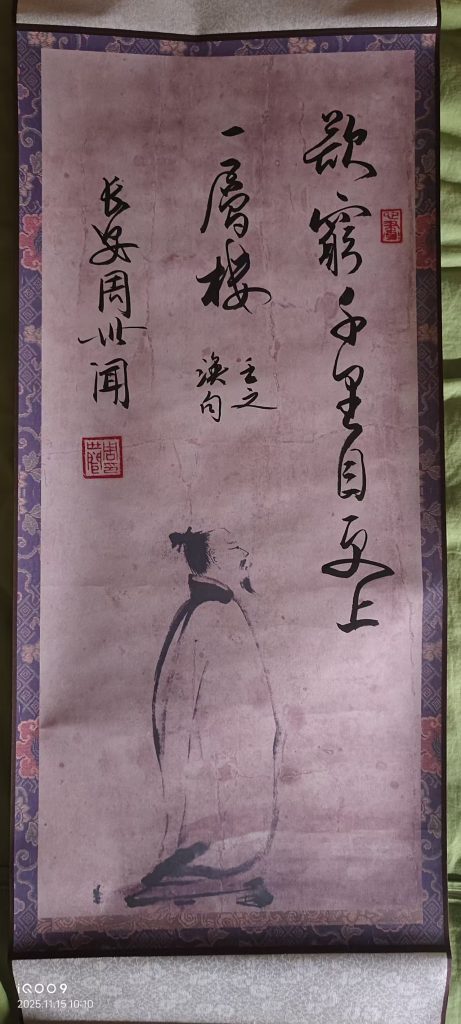 欲窮千里目更上
一層樓
王之
渙句
長安周世聞
iQOO9
2025.11.15 10:10